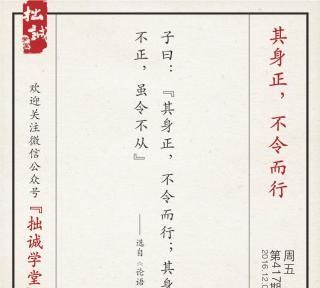 其身正，不令而行
周五
第417期
2016.12.0
子曰：『其身正，不令而行；其身
不正，虽令不从』
——选自《论语
拙誠
欢迎关注微信公众号
『拙诚学堂